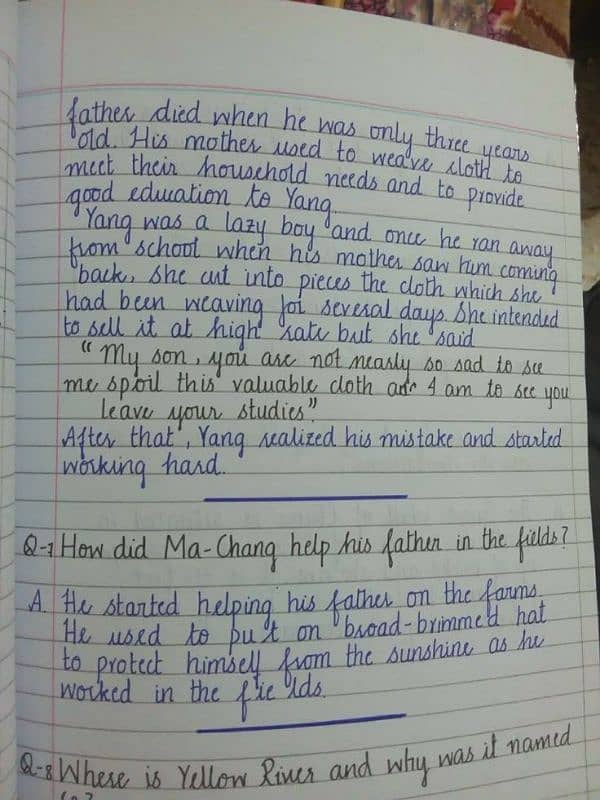 father died when he was only three years
old. His mother used to weave cloth to
meet their household needs and to provide
good education to Yang.
Yang was a lazy boy and once he ran away
from school when his mother saw him coming
back, she cut into pieces the cloth which she
had been weaving for several days. She intended
to sell it at high rate but she said
"My son, you are not nearly so sad to see
me spoil this valuable cloth as I am to see you
leave your studies"
After that, Yang realized his mistake and started
working hard.
Q-7 How did Ma-Chang help his father in the fields?
A. He started helping his father on the farms.
He used to put on broad-brimmed hat
to protect himself from the sunshine as he
worked in the fields.
Q-8 Where is Yellow River and why was it named